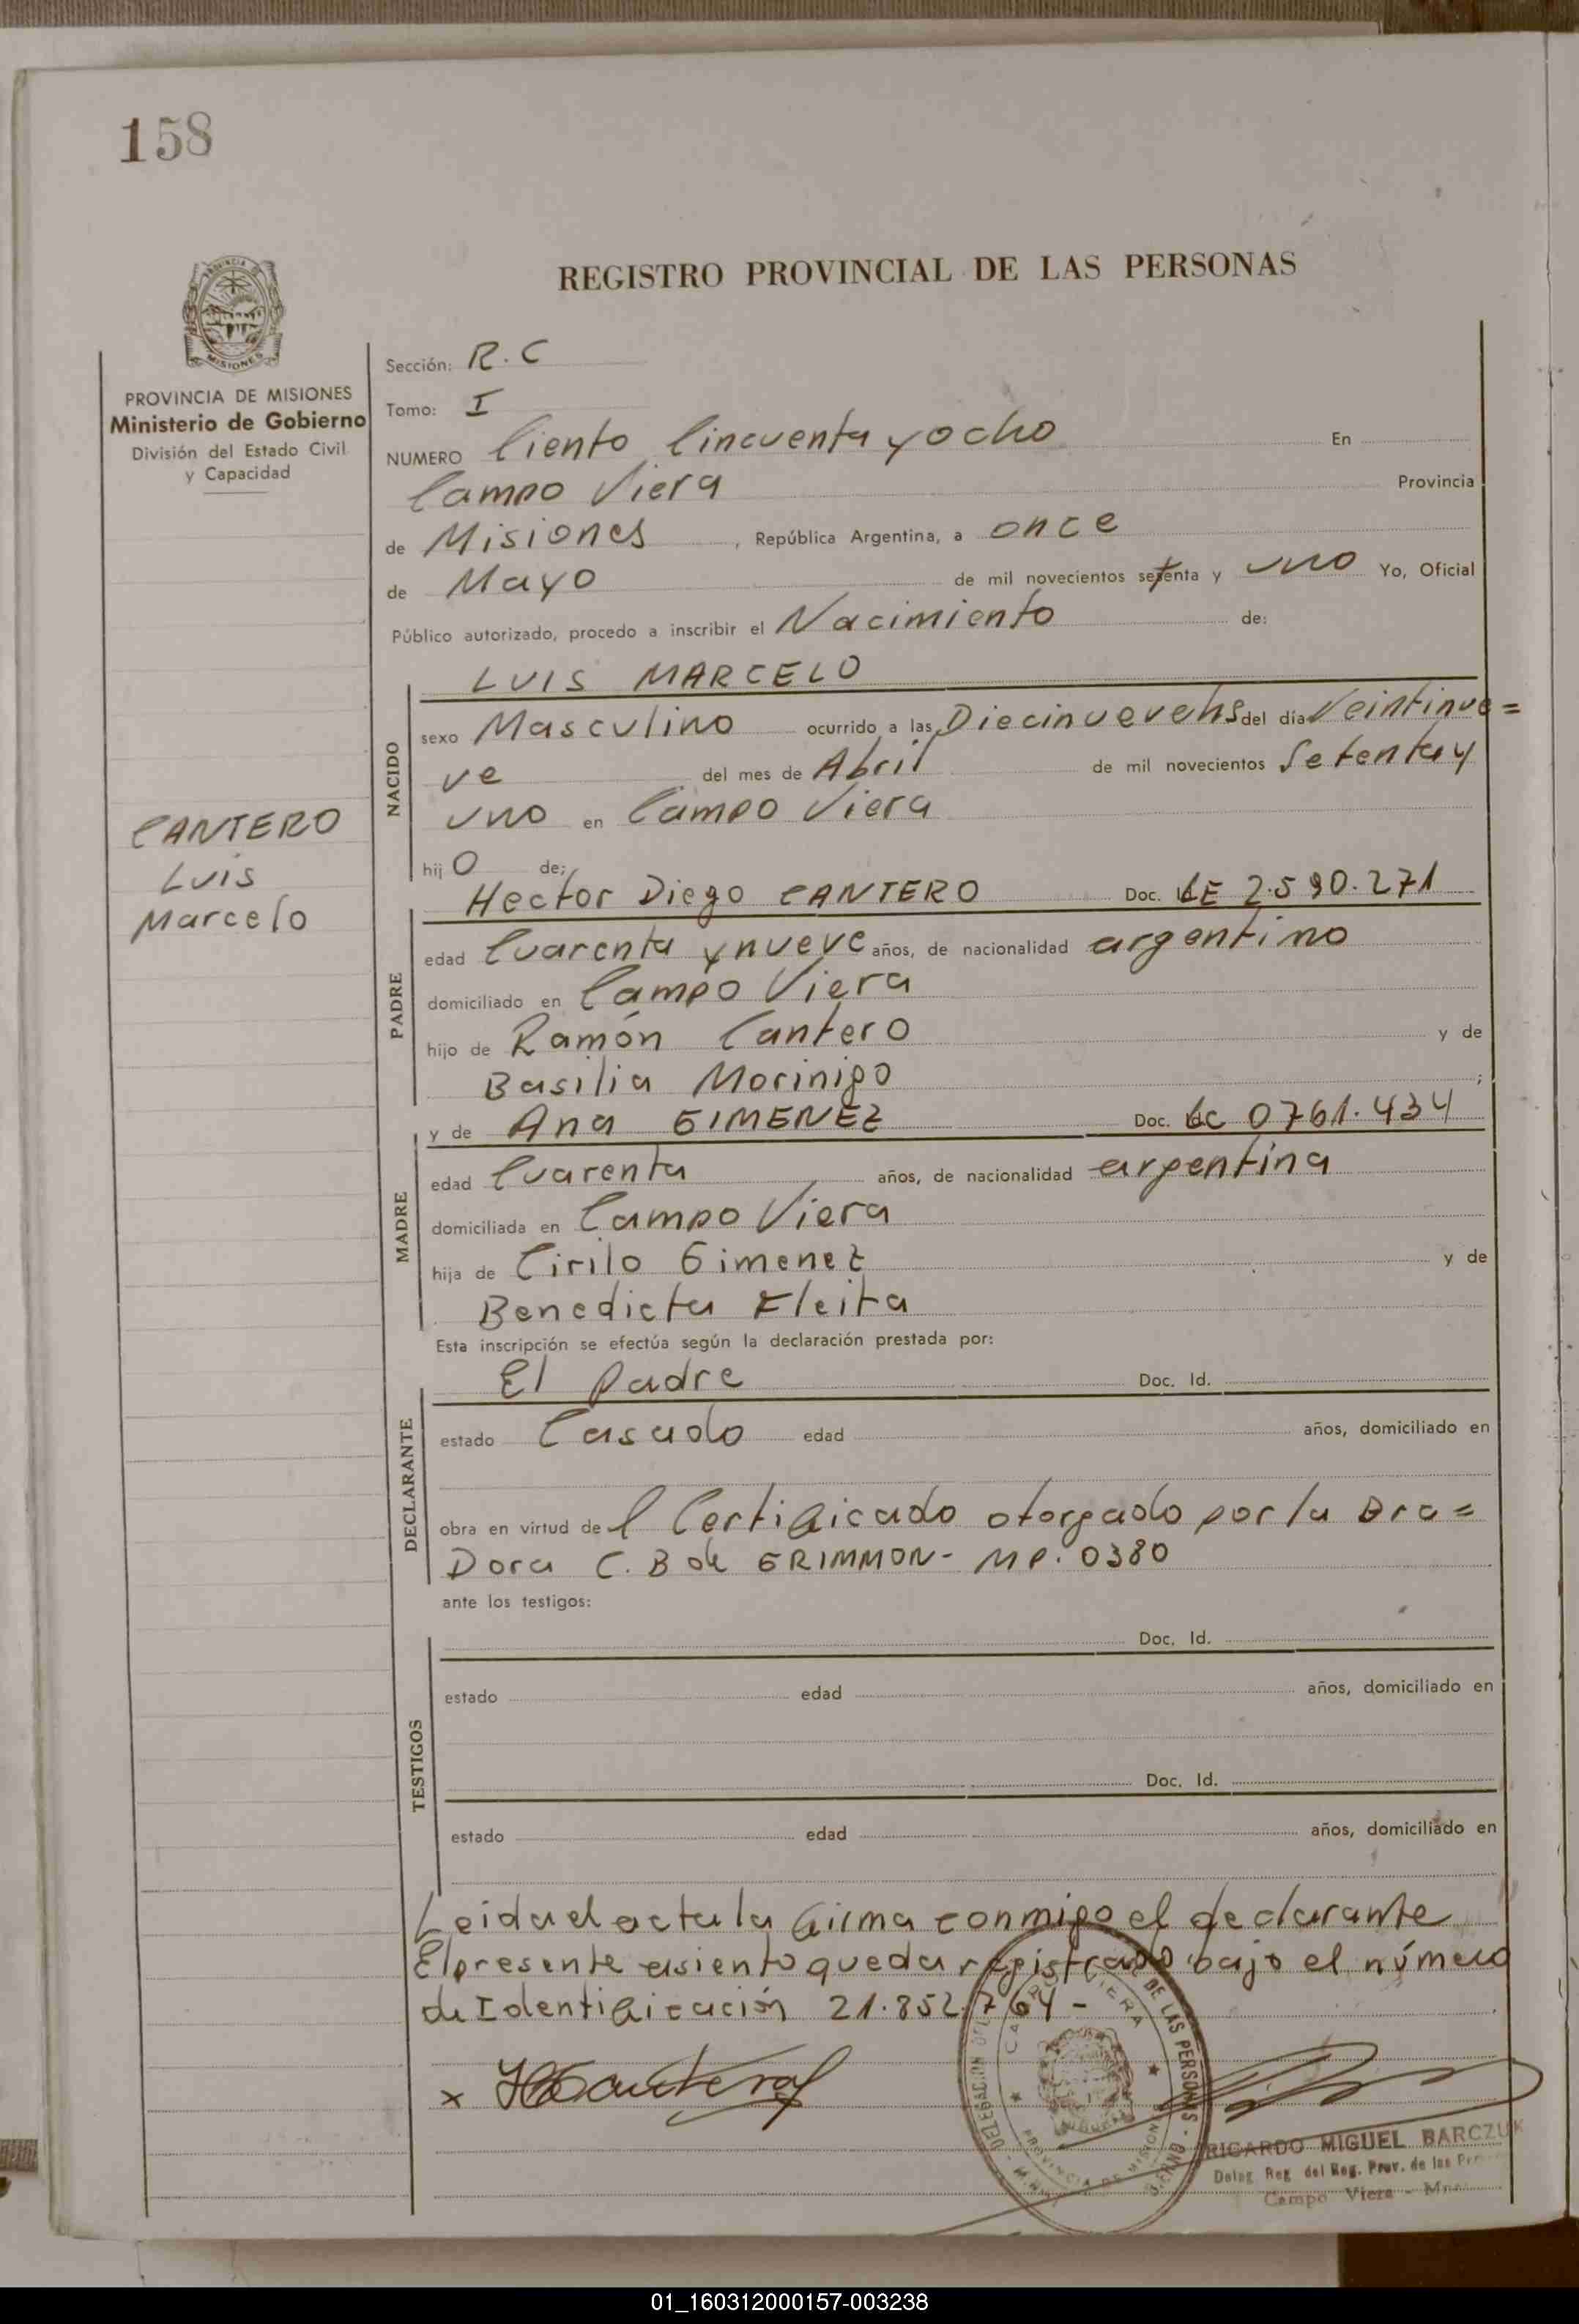 158
REGISTRO PROVINCIAL DE LAS PERSONAS
PROVINCIA DE MISIONES
Ministerio de Gobierno
División del Estado Civil
y Capacidad
CANTERO
Luis
Marcelo
Sección: R.C
Tomo: I
NUMERO Ciento Cincuenta y ocho En
Campo Viera Provincia
de Misiones, República Argentina, a once
de Mayo de mil novecientos setenta y uno Yo, Oficial
Público autorizado, procedo a inscribir el Nacimiento de:
LUIS MARCELO
NACIDO
sexo Masculino ocurrido a las Diecinueve hs del día Veintinue=
ve del mes de Abril de mil novecientos Setenta y
uno en Campo Viera
hijo de;
Hector Diego CANTERO Doc. LE 2.590.271
PADRE
edad Cuarenta y nueve años, de nacionalidad argentino
domiciliado en Campo Viera
hijo de Ramón Cantero y de
Basilia Morinigo ;
y de Ana GIMENEZ Doc. LC 0761.434
MADRE
edad Cuarenta años, de nacionalidad argentina
domiciliada en Campo Viera
hija de Cirilo Gimenez y de
Benedicta Fleita
Esta inscripción se efectúa según la declaración prestada por:
El Padre Doc. Id.
DECLARANTE
estado Casado edad años, domiciliado en
obra en virtud del Certificado otorgado por la Dra=
Dora C. B de GRIMMON- MP. 0380
ante los testigos:
Doc. Id.
TESTIGOS
estado edad años, domiciliado en
Doc. Id.
estado edad años, domiciliado en
Leida el acta la firma conmigo el declarante
El presente asiento queda registrado bajo el número
de Identificación 21.852.764-
x HDCantero
CAMPO VIERA
DE LAS PERSONAS
PROVINCIA DE MISIONES
RICARDO MIGUEL BARCZUK
Deleg Reg del Reg. Prov. de las
Campo Viera - Mnes
01_160312000157-003238